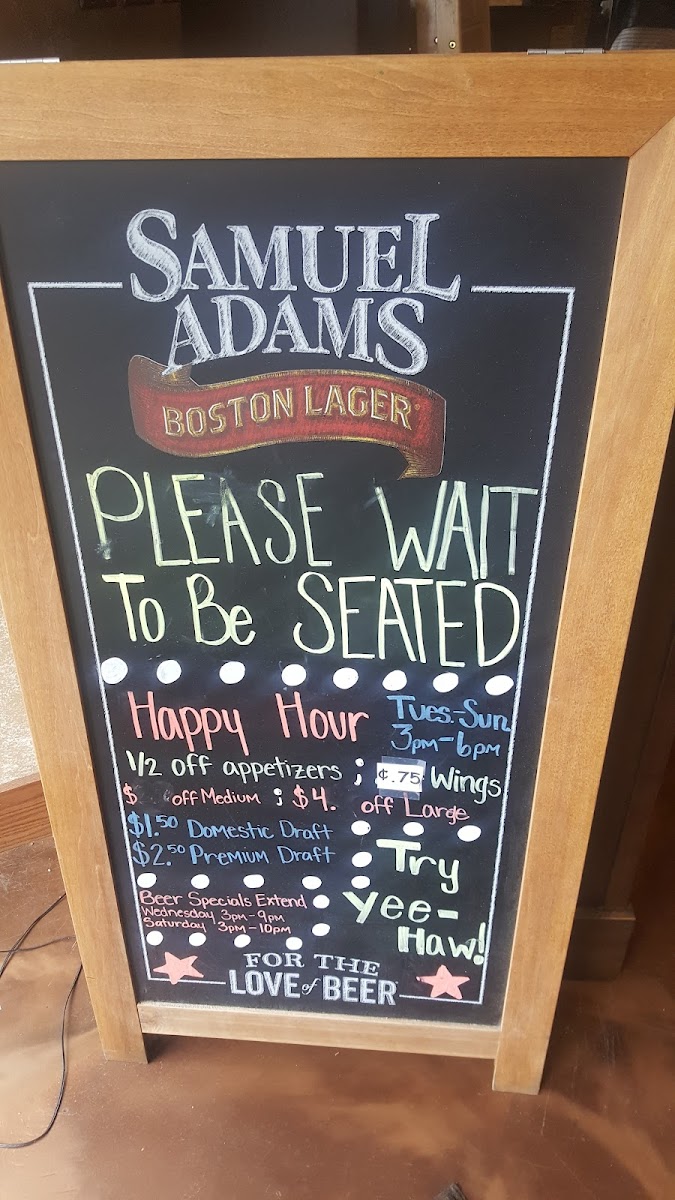 SAMUEL
ADAMS
BOSTON LAGER
PLEASE WAIT
To Be SEATED
Happy Hour
Tues.-Sun.
3pm-6pm
1/2 off appetizers ; ¢.75 Wings
$ off Medium ; $4. off Large
$1.50 Domestic Draft
$2.50 Premium Draft
Try
yee-
Haw!
Beer Specials Extend
Wednesday 3pm-9pm
Saturday 3pm-10pm
FOR THE
LOVE of BEER